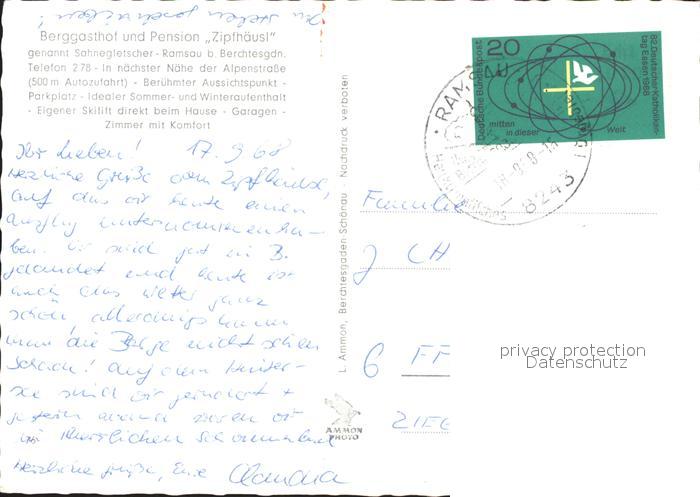 Berggasthof und Pension „Zipfhäusl"
genannt Sahnegletscher - Ramsau b. Berchtesgdn.
Telefon 278 - In nächster Nähe der Alpenstraße
(500 m Autozufahrt) - Berühmter Aussichtspunkt -
Parkplatz - Idealer Sommer- und Winteraufenthalt
- Eigener Skilift direkt beim Hause - Garagen -
Zimmer mit Komfort
Ihr Lieben! 17.9.68
Herzliche Grüße vom Zipfhäusl,
auf das wir heute einen
Ausflug unternommen ha-
ben. Wir sind gut in B.
gelandet und heute ist
auch das Wetter ganz
schön allerdings kann
man die Berge nicht sehen
Schade! Auf dem Hinter-
see sind wir gerudert +
gestern abend waren wir
im herrlichen Schwimmbad
Herzliche Grüße, Eure Claudia
L. Ammon, Berchtesgaden-Schönau - Nachdruck verboten
AMMON
PHOTO
20
Deutsche Bundespost
82. Deutscher Katholiken-
tag Essen 1968
mitten
in dieser
Welt
RAMSAU
8243
Familie
J CH
6 FF
ZIEG
privacy protection
Datenschutz